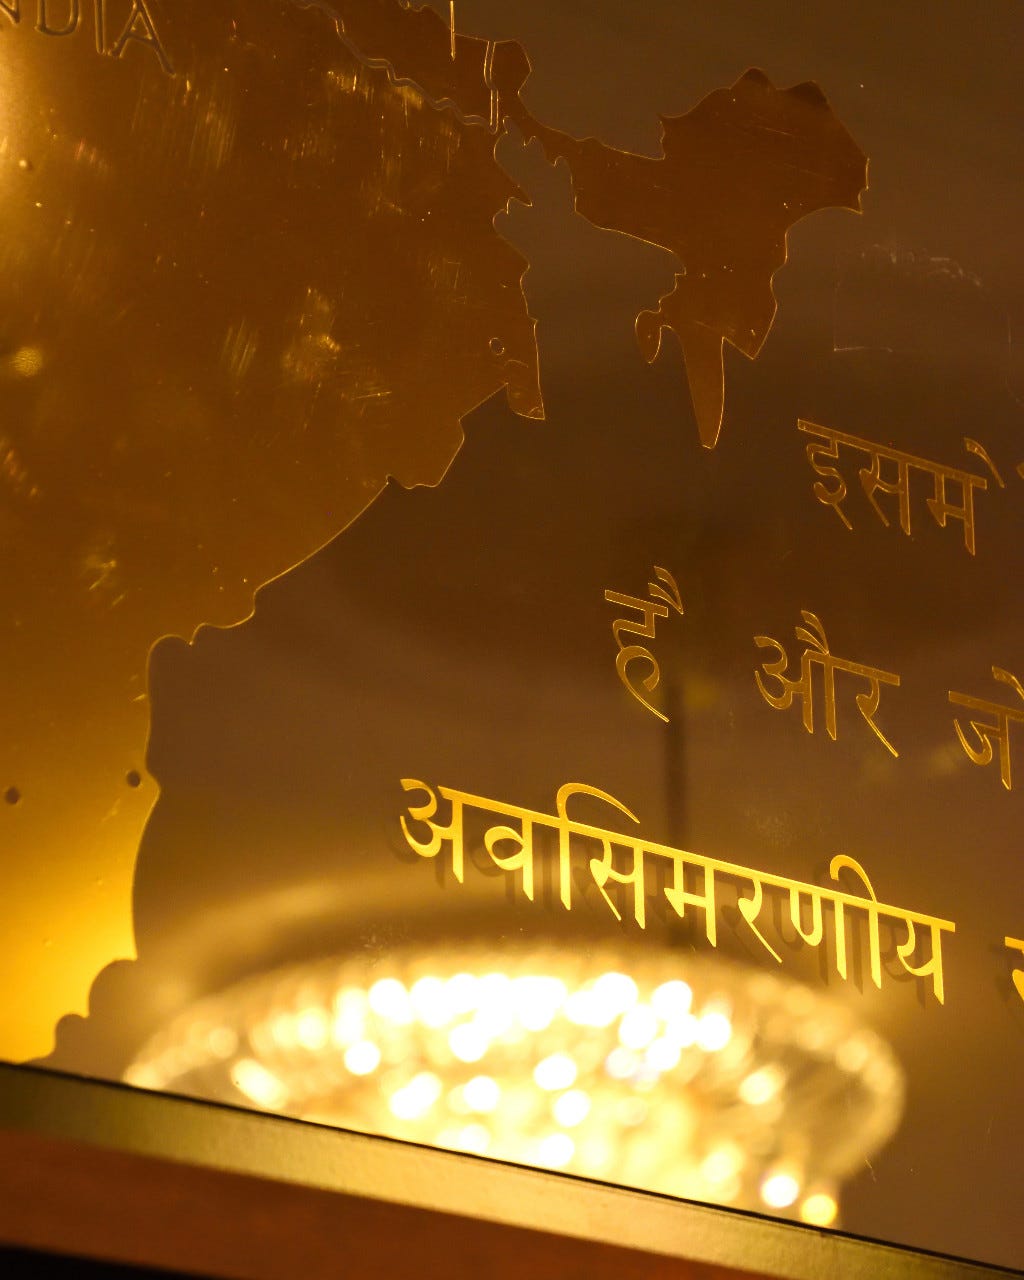 NDIA
इसमे
है और
अवसिमरणीय